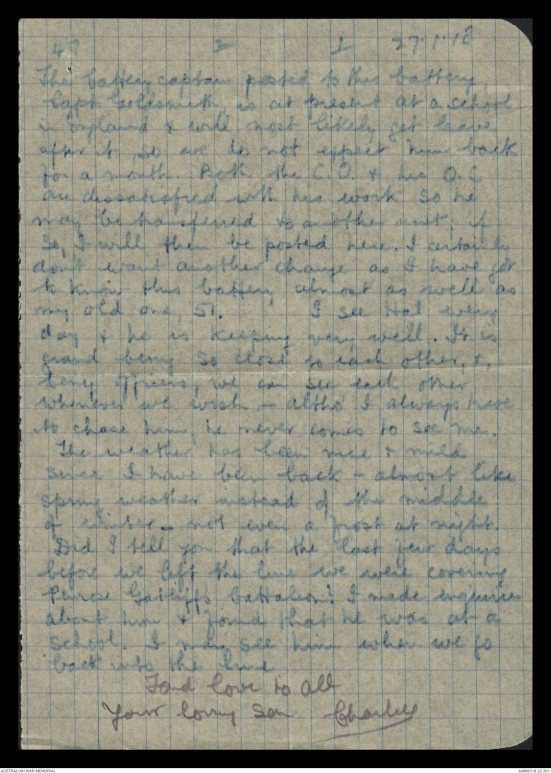 47 2 1 27.1.18
The battery captain posted to this battery,
Capt Goldsmith, is at present at a school
in England & will most likely get leave
after it so we do not expect him back
for a month. Both the C.O. & his O.C
are dissatisfied with his work so he
may be transferred to another unit; if
so, I will then be posted here. I certainly
dont want another change as I have got
to know this battery almost as well as
my old one, 51. I see Hal every
day & he is keeping very well. It is
grand being so close to each other, &,
being officers, we can see each other
whenever we wish - altho I always have
to chase him, he never comes to see me.
The weather has been nice & mild
since I have been back - almost like
spring weather instead of the middle
of winter - not even a frost at night.
Did I tell you that the last few days
before we left the line we were covering
Penrose Gatliffs battalion? I made enquiries
about him & found that he was at a
School. I may see him when we go
back into the line
Fond love to all
Your loving Son Charlie
AUSTRALIAN WAR MEMORIAL